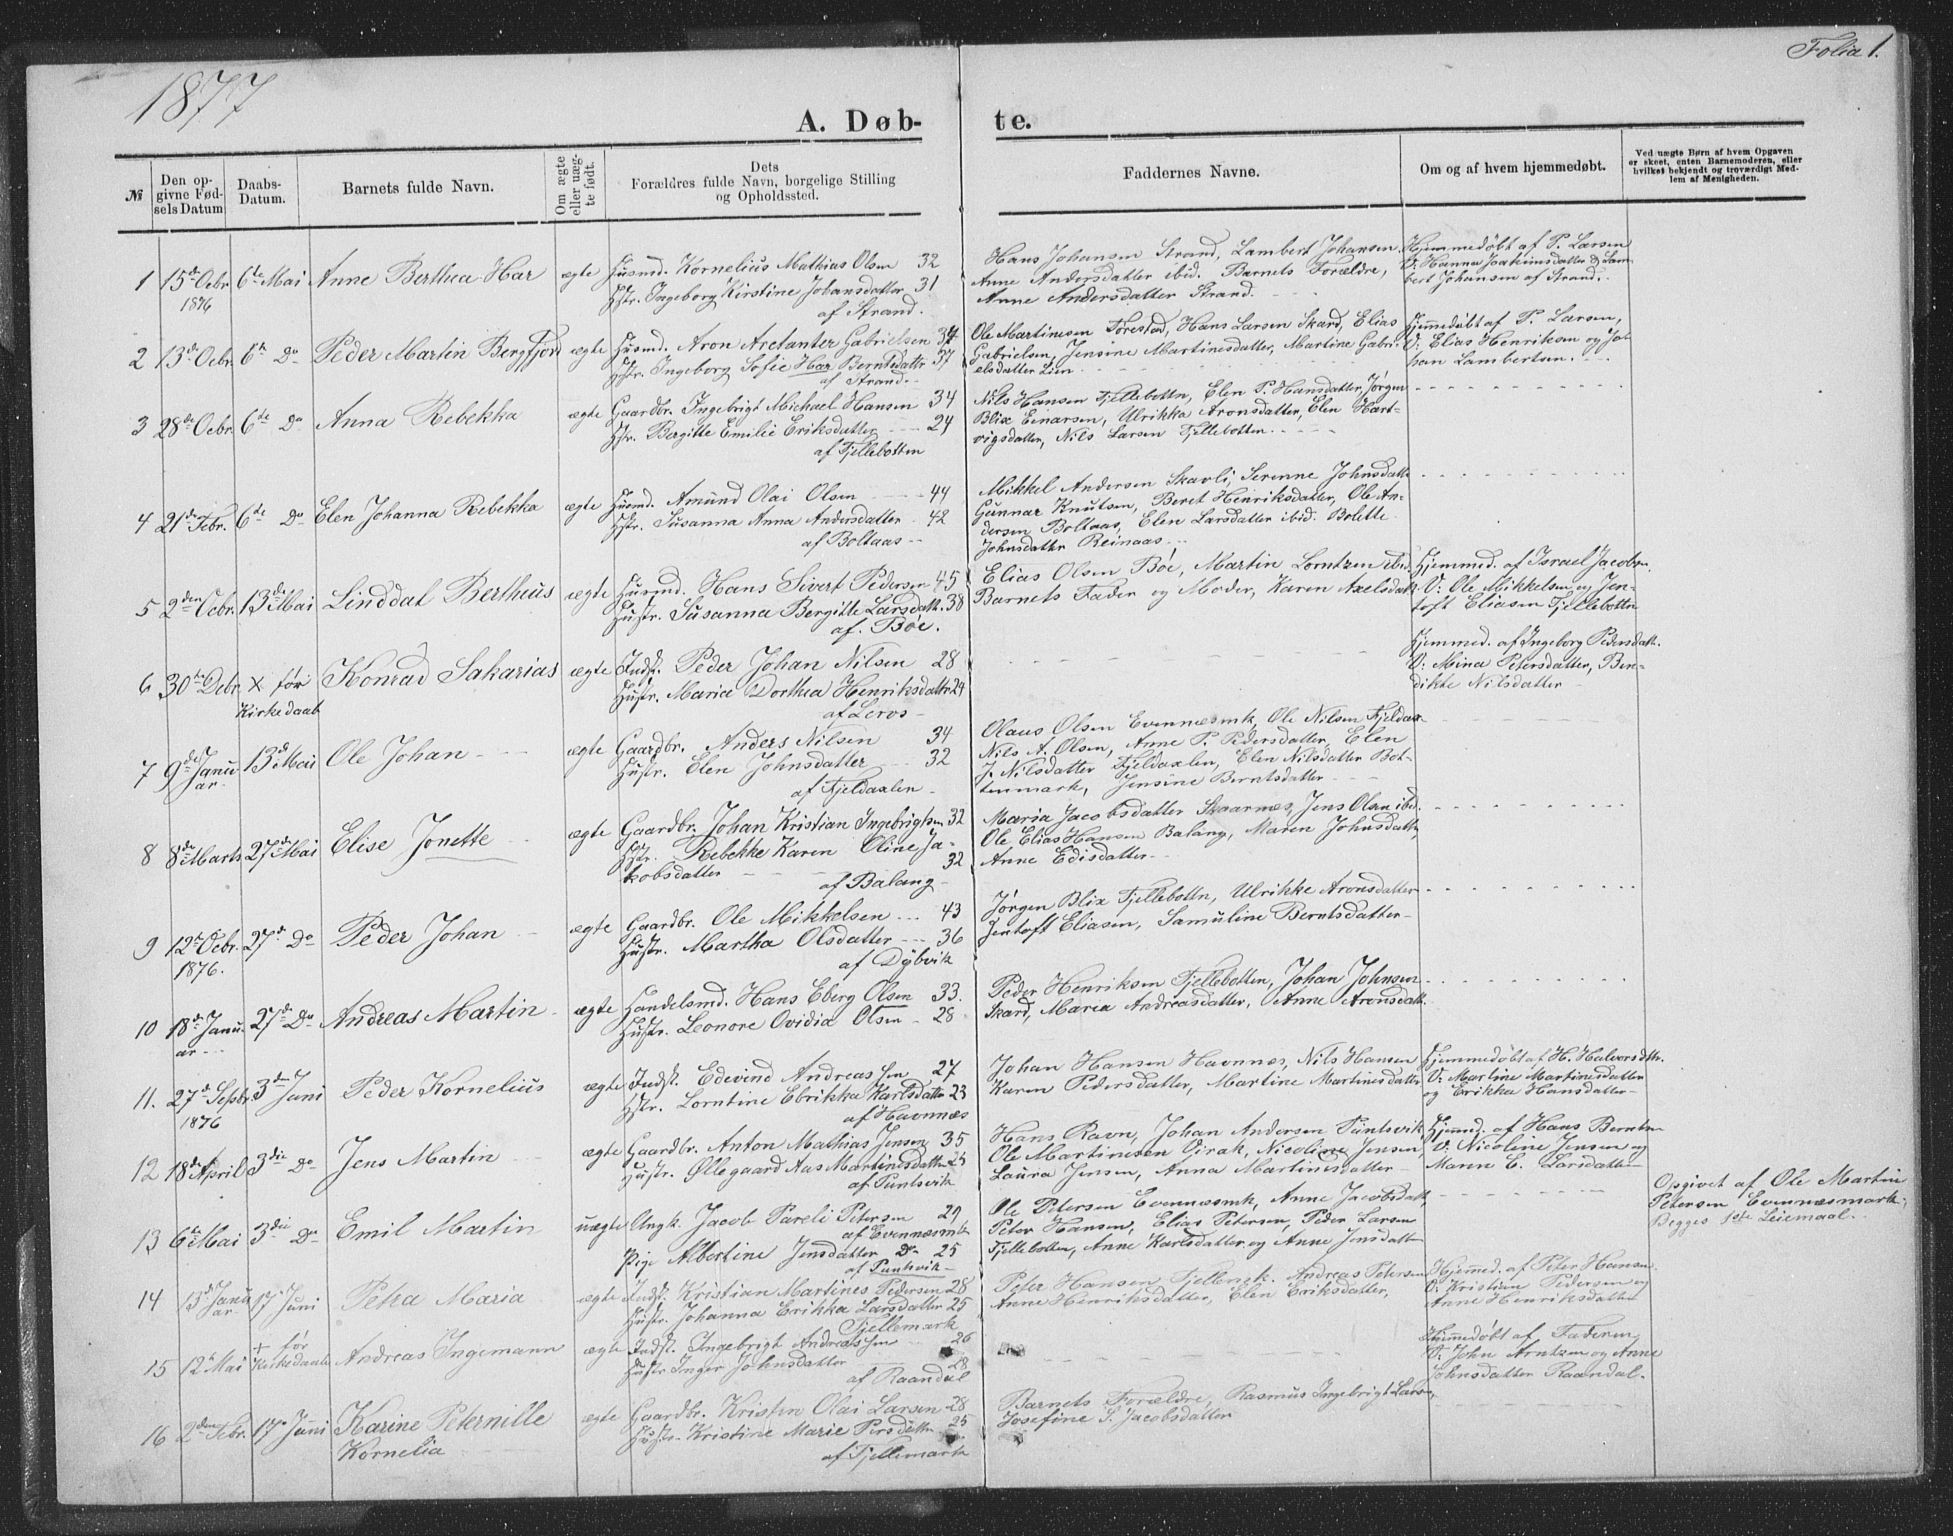 1877
Folio 1.
A. Døb-
te.
№
Den op-
givne Fød-
sels Datum
Daabs-
Datum.
Barnets fulde Navn.
Om ægte
eller uæg-
te født.
Dets
Forældres fulde Navn, borgelige Stilling
og Opholdssted.
Faddernes Navne.
Om og af hvem hjemmedøbt.
Ved uægte Børn af hvem Opgaven
er skeet, enten Barnemoderen, eller
hvilket bekjendt og troværdigt Med-
lem af Menigheden.
1 15de Ocbr. 6te Mai Anne Berthea Har ægte Husmd. Kornelius Mathias Olsen 32
1876 Hstr. Ingeborg Kirstine Johansdatter 31
af Strand.
Hans Johansen Strand, Lambert Johansen
Anne Andersdatter ibid. Barnets Forældre,
Anne Andersdatter Strand.
Hjemmedøbt af P. Larsen
V: Hanna Joakimsdatter & Lam-
bert Johansen af Strand.
2 13de Ocbr. 6te Do Peder Martin Bergfjord ægte Husmd. Aron Arctanter Gabrielsen 34
Hstr. Ingeborg Sofie Har Berntsdattr 37
af Strand.
Ole Martinesen Forestad, Hans Larsen Skard, Elias
Gabrielsen, Jensine Martinesdatter, Martine Gabri-
elsdatter Lien
Hjemmedøbt af P. Larsen,
V: Elias Henriksen og Jo-
han Lambertsen.
3 28de Ocbr. 6te Do Anna Rebekka ægte Gaardbr. Ingebrigt Michael Hansen 34
Hstr. Bergitte Emilie Eriksdatter 24
af Fjellebotten
Nils Hansen Fjellebottn, Elen P. Hansdatter, Jørgen
Blix Einarsen, Ulrikka Aronsdatter, Elen Hart-
vigsdatter, Nils Larsen Fjellebotten
4 21de Febr. 6te Do Elen Johanna Rebekka ægte Husmd. Amund Olai Olsen 44
Hstr. Susanna Anna Andersdatter 42
af Boltaas
Mikkel Andersen Skavli, Serenne Johnsdattr
Gunnar Knutsen, Beret Henriksdatter, Ole An-
dersen Boltaas, Elen Larsdatter ibid. Bolette
Johnsdatter Reinaas
5 2den Ocbr. 13de Mai Linddal Bertheus ægte Husmd. Hans Sivert Pedersen 45
Hustr. Susanna Bergitte Larsdattr. 38
af Böe.
Elias Olsen Böe, Martin Lorntzen ibid
Barnets Fader og Moder, Karen Axelsdattr
Hjemmed. af Israel Jacobsen.
V: Ole Mikkelsen og Jen-
toft Eliasen Fjellebottn
6 30te Debr. × før Konrad Sakarias ægte Indst. Peder Johan Nilsen 28
Kirkedaab Hustr. Maria Dorthea Henriksdattr 24
af Leros
Hjemmed. af Ingeborg Pedersdattr.
V: Mina Petersdatter, Ben-
dikte Nilsdatter
7 9de Janu- 13de Mai Ole Johan ægte Gaardbr. Anders Nilsen 34
ar. Hustr. Elen Johnsdatter 32
af Fjeldaxlen
Olaus Olsen Evennesmk, Ole Nilsen Fjeldax-
Nils A. Olsen, Anne P. Pedersdatter, Elen
J. Nilsdatter Fjeldaxlen, Elen Nilsdatter Bot-
tenmark, Jensine Berntsdatter
8 8de Marts 27de Mai Elise Jonette ægte Gaardbr. Johan Kristian Ingebrigtsen 32
Hstr. Rebekke Karen Oline Ja-
kobsdatter 32
af Balang
Maria Jacobsdatter Skaarnes, Jens Olsen ibd.
Ole Elias Hansen Balang, Maren Johnsdattr,
Anne Edisdatter
9 12te Ocbr. 27de Do Peder Johan ægte Gaardbr. Ole Mikkelsen 43
1876. Hustr. Martha Olsdatter 36
af Dybvik
Jørgen Blix Fjellebottn, Ulrikke Aronsdatter
Jentoft Eliasen, Samuline Berntsdatter
10 18de Janu- 27de Do Andreas Martin ægte Handelsmd. Hans Eberg Olsen 33.
ar Hustr. Leonore Ovidia Olsen 28
Peder Henriksen Fjellebotten, Johan Johnsen
Skard, Maria Andreasdatter, Anne Aronsdattr.
11. 27de Septbr 3die Juni Peder Kornelius ægte Indst. Edevind Andreassen 27
1876 Hstr. Lorntine Ebrikka Karlsdatter 23
af Havnnæs
Johan Hansen Havnnes, Nils Hansen
Karen Pedersdatter, Martine Martinesdatter
Hjemmedøbt af H. Halvorsdttr.
V: Martine Martinesdatter
og Erikka Hansdatter
12 18de April 3die Do Jens Martin ægte Gaardbr. Anton Mathias Jensen 35
Hustr. Ollegaard Aas Martinesdatter 25
af Puntsvik
Hans Ravn, Johan Andersen Puntsvik
Ole Martinesen Virak, Nicoline Jensen,
Laura Jensen, Anna Martinesdatter
Hjemd. af Hans Berntsn
V: Nicoline Jensen og
Maren E. Larsdatter
13 6te Mai 3die Do Emil Martin uægte Ungk. Jacob Pareli Petersen 29
af Evennæsmk
Pige Albertine Jensdatter Do 25
af Puntsvik
Ole Petersen Evennæsmk, Anne Jacobsdatt,
Peter Hansen, Elias Petersen, Peder Larsen
Fjellebotten, Anne Karlsdatter og Anne Jensdatter
Opgivet af Ole Martin
Petersen Evennæsmark,
Begges 1ste Leiemaal.
14 13de Janu- 17 Juni Petra Maria ægte Indst. Kristian Martines Pedersen 28
ar Hustr. Johanna Erikka Larsdatter 25
Fjellemark
Peter Hansen Fjellemk. Andreas Petersen
Anne Henriksdatter, Elen Eriksdatter,
Hjemed. af Peter Hansen
V: Kristian Pedersen og
Anne Henriksdatter
15 12te Mai + før Andreas Ingemann ægte Indst. Ingebrigt Andreassen 26
Kirkedaab Hustr Inger Johnsdatter 28
af Raandal
Hjemmedøbt af Faderen
V: John Arntzen og Anne
Johnsdatter Raandal.
16 2den Febr. 17de Juni Karine Peternille ægte Gaardbr. Kristen Olai Larsen 28
Kornelia Hustr. Kristine Marie Persdatter 25
af Fjellemark
Barnets Forældre, Rasmus Ingebrigt Larsen,
Josefine S. Jacobsdatter